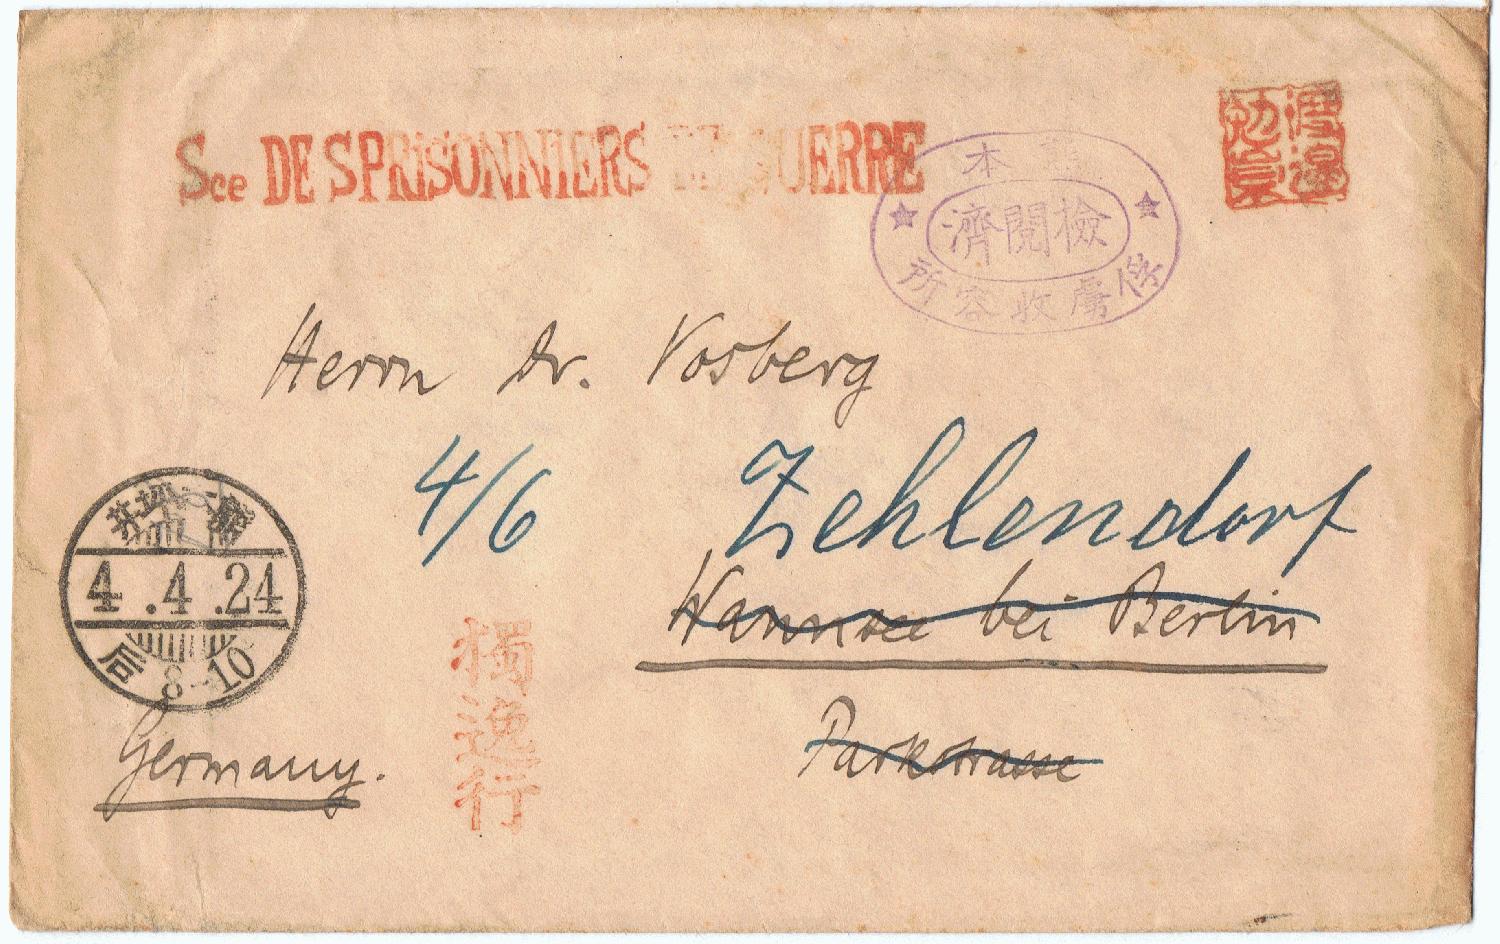 Sce DES PRISONNIERS DE GUERRE
本
檢閱濟
俘虜收容所
渡邊
Herrn Dr. Vosberg
4/6
Zehlendorf
Wannsee bei Berlin
Parkstrasse
4.4.24
局
8-10
獨逸行
Germany.